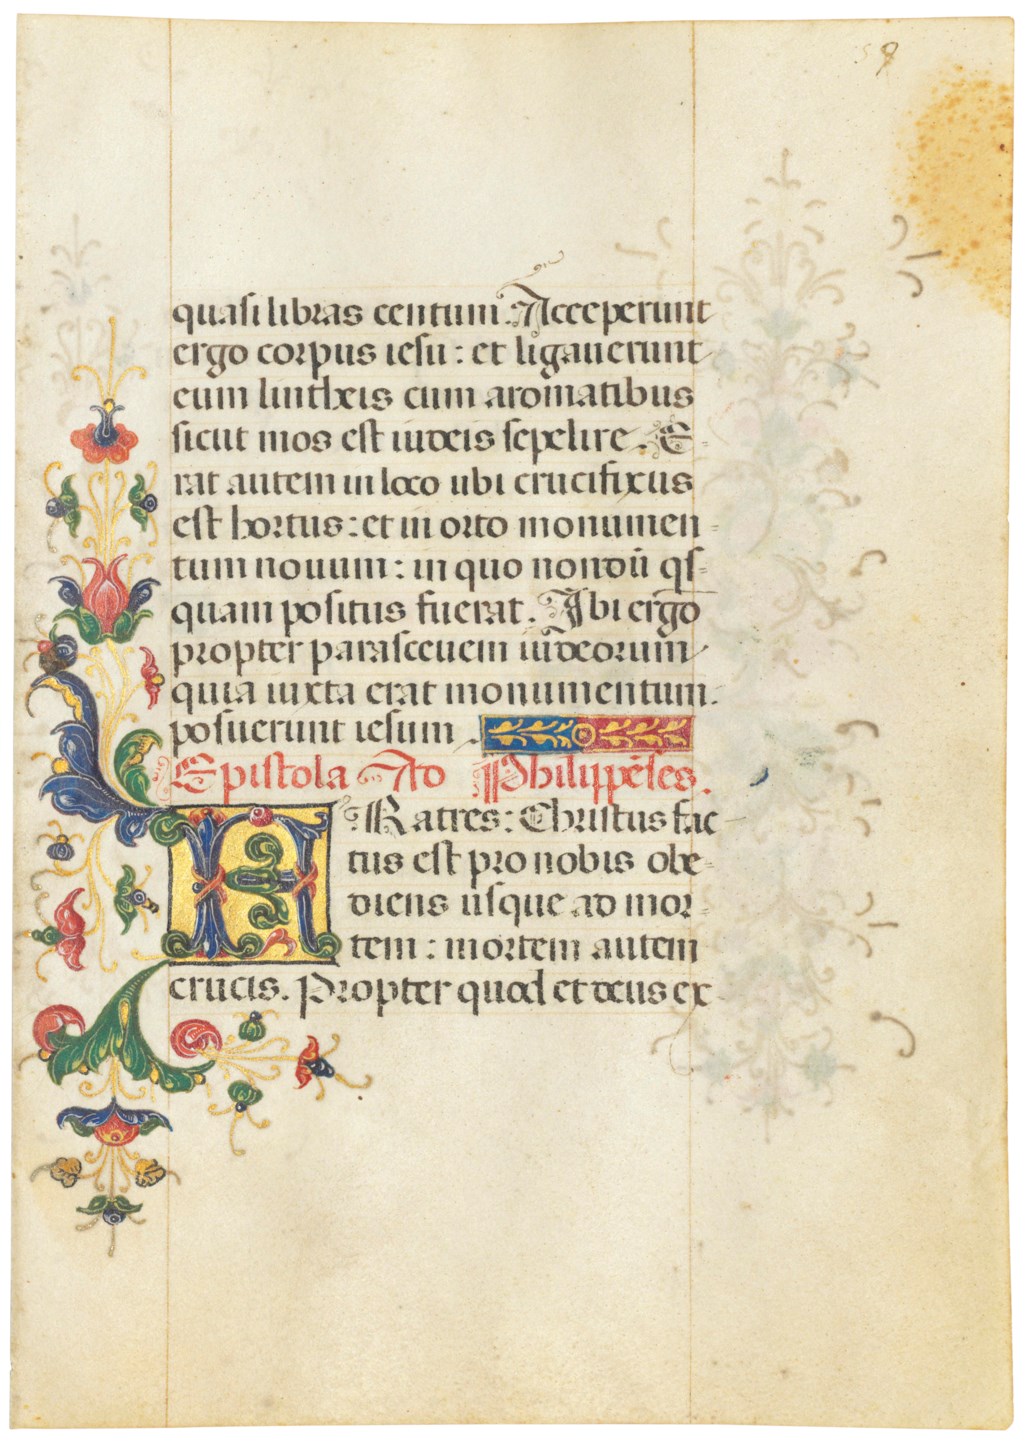 59
quasi libras centum. Acceperunt
ergo corpus iesu: et ligauerunt
eum lintheis cum aromatibus
sicut mos est iudeis sepelire. E-
rat autem in loco ubi crucifixus
est hortus: et in orto monumen-
tum nouum: in quo nondū qs-
quam positus fuerat. Ibi ergo
propter parasceuem iudeorum
quia iuxta erat monumentum
posuerunt iesum.
Epistola Ad Philippēses.
FRatres: Christus fac-
tus est pro nobis obe-
diens usque ad mor-
tem: mortem autem
crucis. Propter quod et deus ex-